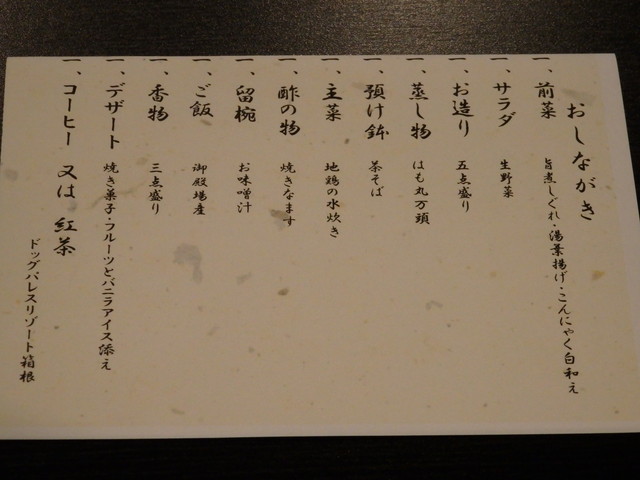 おしながき
一、前菜 旨煮しぐれ・湯葉揚げ・こんにゃく白和え
一、サラダ 生野菜
一、お造り 五点盛り
一、蒸し物 はも丸万頭
一、預け鉢 茶そば
一、主菜 地鶏の水炊き
一、酢の物 焼きなます
一、留椀 お味噌汁
一、ご飯 御殿場産
一、香物 三点盛り
一、デザート 焼き菓子・フルーツとバニラアイス添え
一、コーヒー 又は 紅茶
ドッグパレスリゾート箱根